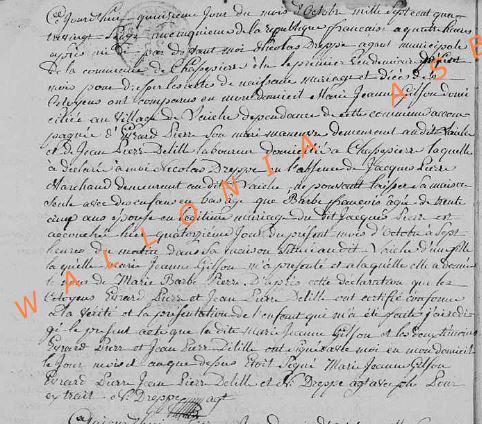 Cejourd'hui quinzieme jour du mois d'octobre mille sept cent quatre
vingt seize an cinquieme de la republique française a quatre heures
apres midi par devant moi Nicolas Dreppe agent municipale
de la commune de Chassepierre élu le premier Vendemiaire
mois pour dresser les actes de naissance mariage et décès des
Citoyens ont comparus en mon domicil Marie Jeanne Gilson domi
ciliée au village de Laiche dependance de cette commune accom
pagnée d'Evrard Pierre son mari manœuvre demeurent audit Laiche
et de Jean Pierre Delille laboureur domicilié a Chassepierre laquelle
a déclaré a moi Nicolas Dreppe en l'absence de Jacques Pierre
Marchand demeurent audit Laiche, ne pouvant laisser sa maison
seule avec des enfans en bas age que Barbe françois agée de trente
cinq ans Epouse en legitime mariage du dit Jacques Pierre est
accouchée hier quatorzieme jour du present mois d'octobre a sept
heures du matin dans sa maison située audit Laiche d'une fille
laquelle Marie Jeanne Gilson m'a presenté et a laquelle elle a donné
le nom de Marie Barbe Pierre. D'après cette declaration que les
Citoyens Evrard Pierre et Jean Pierre Delille ont certifié conforme
a la verité et la presentation de l'enfant qui m'a été faite j'ai redi
gé le present acte que la dite Marie Jeanne Gilson et les deux témoins
Evrard Pierr et Jean Pierre Delille ont signé avec moi en mon domicil
le jour mois et an que dessus Etoit Signé Marie Jeanne Gilson
Evrard Pierr Jean Pierr Delille et N: Dreppe agt avec ph Pour
extrait N: Dreppe agt
WALLONIA ASB